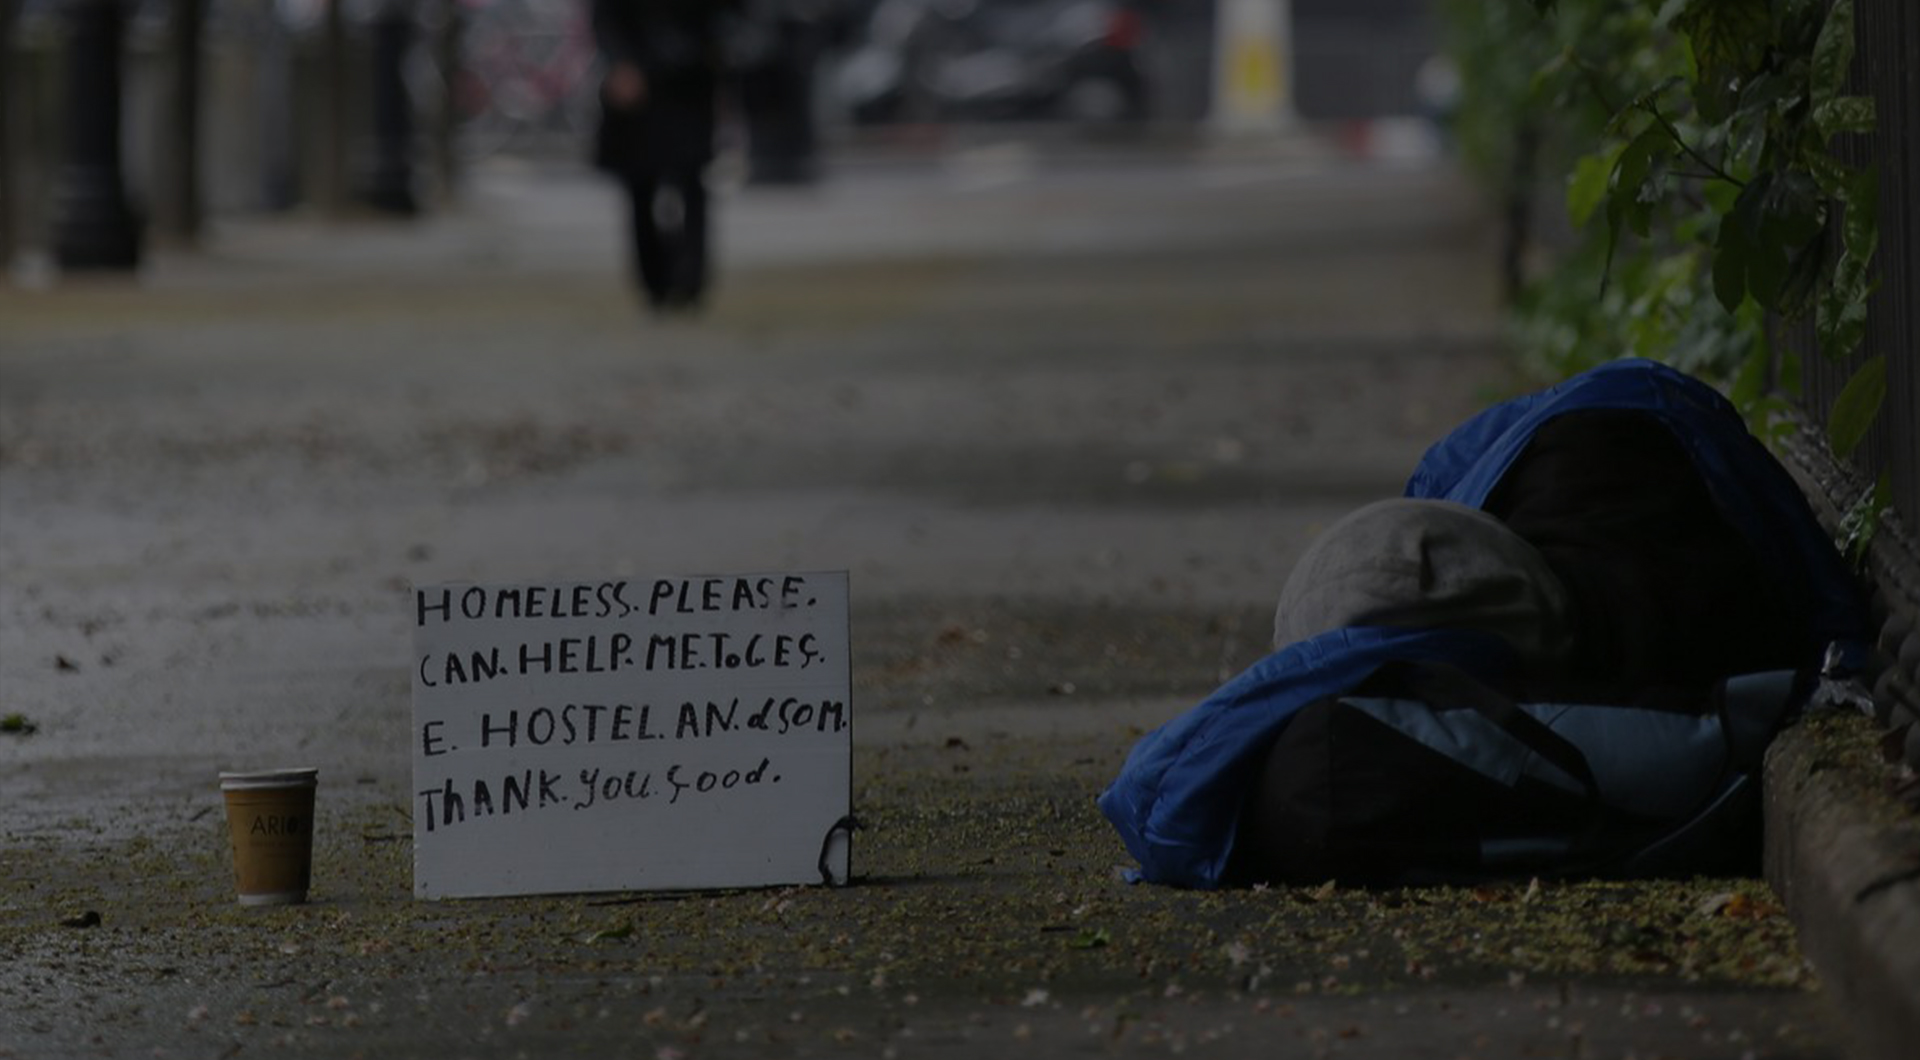 HOMELESS. PLEASE.
CAN. HELP. ME. To. GEŞ.
E. HOSTEL. AN. d SOM.
ThANK. you. şood.
ARIO